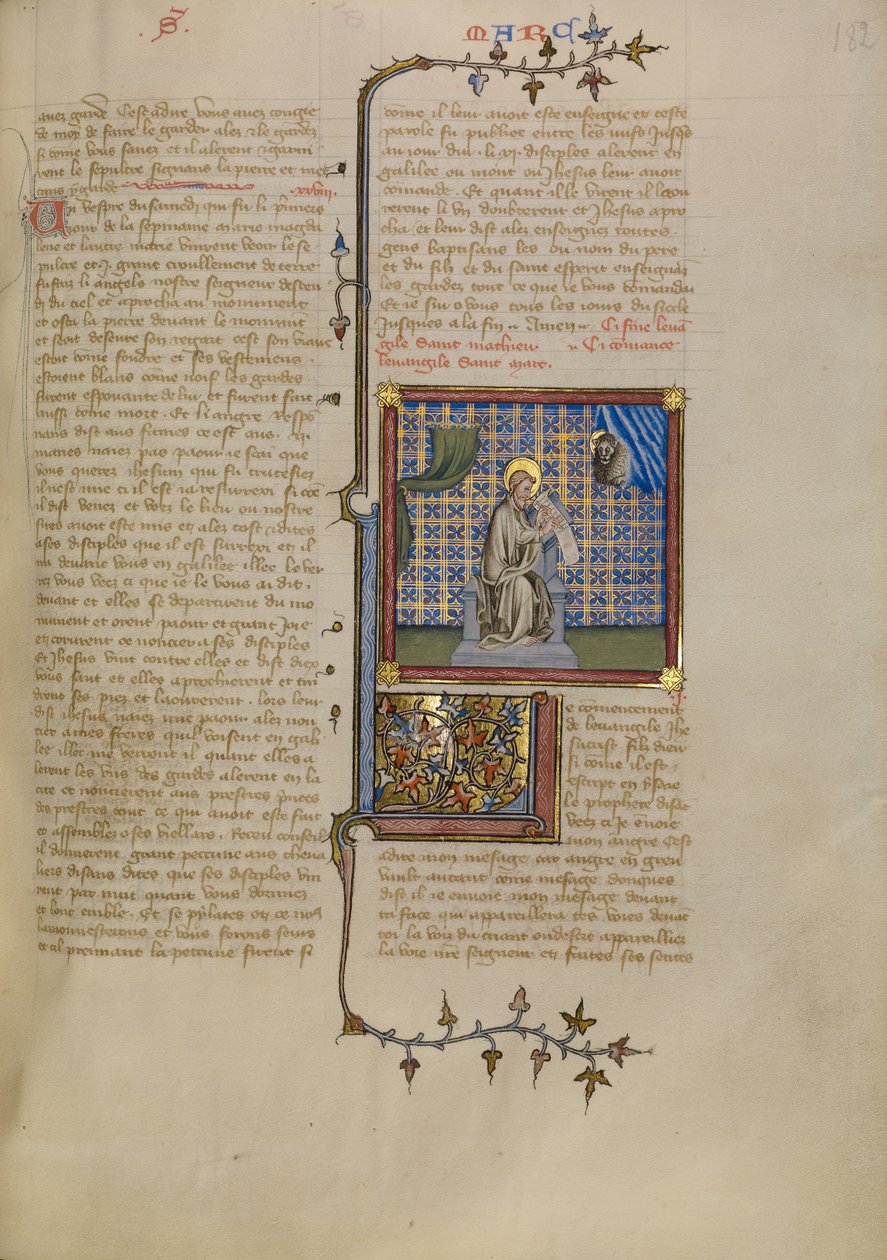 S.
MARC
182
avez garde Cest a dire vous avez congie
de moy de faire le garder alez & le gardez
si come vous savez et il alerent & garni
rent le sepulcre signans la pierre et met
tans y garde
xxviii.
Un vespre du samedi qui fu li premiers
jours de la sepmaine marie magda
lene et lautre marie vinrent veoir le se
pulcre et .j. grant croullement de terre
fu fait li angels nostre seigneur descen
di du ciel et aprocha au monument
et osta la pierre devant le monumt
et seoit deseure son regart cest son viaire
estoit come foudre et ses vestemens
estoient blans come noif les gardes
furent espouante de lui et furent fait
aussi come mort. Et li angre respo
nans dist aus fames ce est aus .ij.
maries naiez pas paour ie scai que
vous querez ihesum qui fu crucefiez
il nest mie ci il est ia resurrexi si coe
il dist venez et veez le lieu ou nostre
sires avoit este mis et alez tost & dites
a ses disciples que il est surrexi et il
ira devant vous en galilee illec le ver
rez vous veez ci que ie le vous ai dit.
devant et elles se departirent du mo
nument et orent paour et grant joie
et coururent ce noncier a ses disciples
Et Jhesus vint contre elles et dist diex
vous saut et elles aprochierent et tin
drent ses piez et laourerent. lors leur
dist ihesus naiez mie paour alez non
cier a mes freres quil voisent en gali
lee illec me verront il quant elles a
lerent les uns des gardes alerent en la
cite et noncierent aus prestres princes
des prestres tout ce qui avoit este fait
et assemblez o ses viellars. Receu conseil
il donnerent grant peccune aus cheva
liers disans dites que ses disciples vin
rent par nuit quant vous dormiez
et lont emble. Et se pylates ot ce nous
lamonnesterons et vous ferons seurs
et il prennant la peccune furent si
come il leur avoit este enseigne et ceste
parole fu publiee entre les iuifs Jusqs
au iour dui. li xi. disciples alerent en
galilee ou mont ou Jhesus leur avoit
comande. Et quant il le virent il laou
rerent li un doubterent et Jhesus apro
cha et leur dist alez enseignez toutes
gens baptisans les ou nom du pere
et du filz et du saint esperit enseignaz
les gardez tout ce que ie vous comandai
Et ie sui o vous tous les iours du siecle
Jusques a la fin Amen Ci fine leva
gile Saint mathieu Ci comance
levangile Saint marc.
j.
e comencement
de levangile Jhe
sucrist filz dieu
si come il est
escript en ysaie
le prophete disat
veez ci Je envoie
mon angre Cest
a dire mon mesage car angre en greu
vault autant come mesage donques
dist il ie envoie mon mesage devant
ta face qui appareillera tes voies devat
toi la voiz du criant ou desert appareilliez
la voie nre seigneur et faites ses sentes